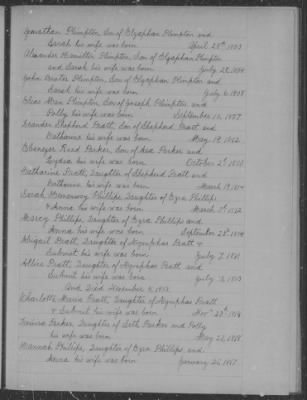 Jonathan Plimpton, Son of Elijaphan Plimpton and
Sarah his wife was born April 28th 1803
Alexander Plimpton, Son of Elijaphan Plimpton
and Sarah his wife was born July 29, 1804
John Plimpton, Son of Elijaphan Plimpton and
Sarah his wife was born July 6, 1808
Elias Plimpton, Son of Joseph Plimpton and
Polly his wife was born September 10,
Leander Shepherd Pratt, Son of Shepherd Pratt and
Catharine his wife was born May 19, 1812
Ebenezer Reed Parker, Son of Asa Parker and
Lydia his wife was born October 2d 1810
Catharine Pratt, Daughter of Shepherd Pratt and
Catharine his wife was born March 17, 1814
Sarah Phillips, Daughter of Ezra Phillips
& Anna his wife was born March 1st 1812
Mercy Phillips, Daughter of Ezra Phillips and
Anna his wife was born September 28th 1814
Abigail Pratt, Daughter of Nymphas Pratt &
Submit his wife was born July 7, 1811
Allice Pratt, Daughter of Nymphas Pratt and
Submit his wife was born July 13, 1813
And Died November 4, 1813
Charlotte Maria Pratt, Daughter of Nymphas Pratt
& Submit his wife was born Novr 23d 1814
Parker, Daughter of Seth Parker and Polly
his wife was born May 21, 1808
Hannah Phillips, Daughter of Ezra Phillips, and
Anna his wife was born January 26, 1817